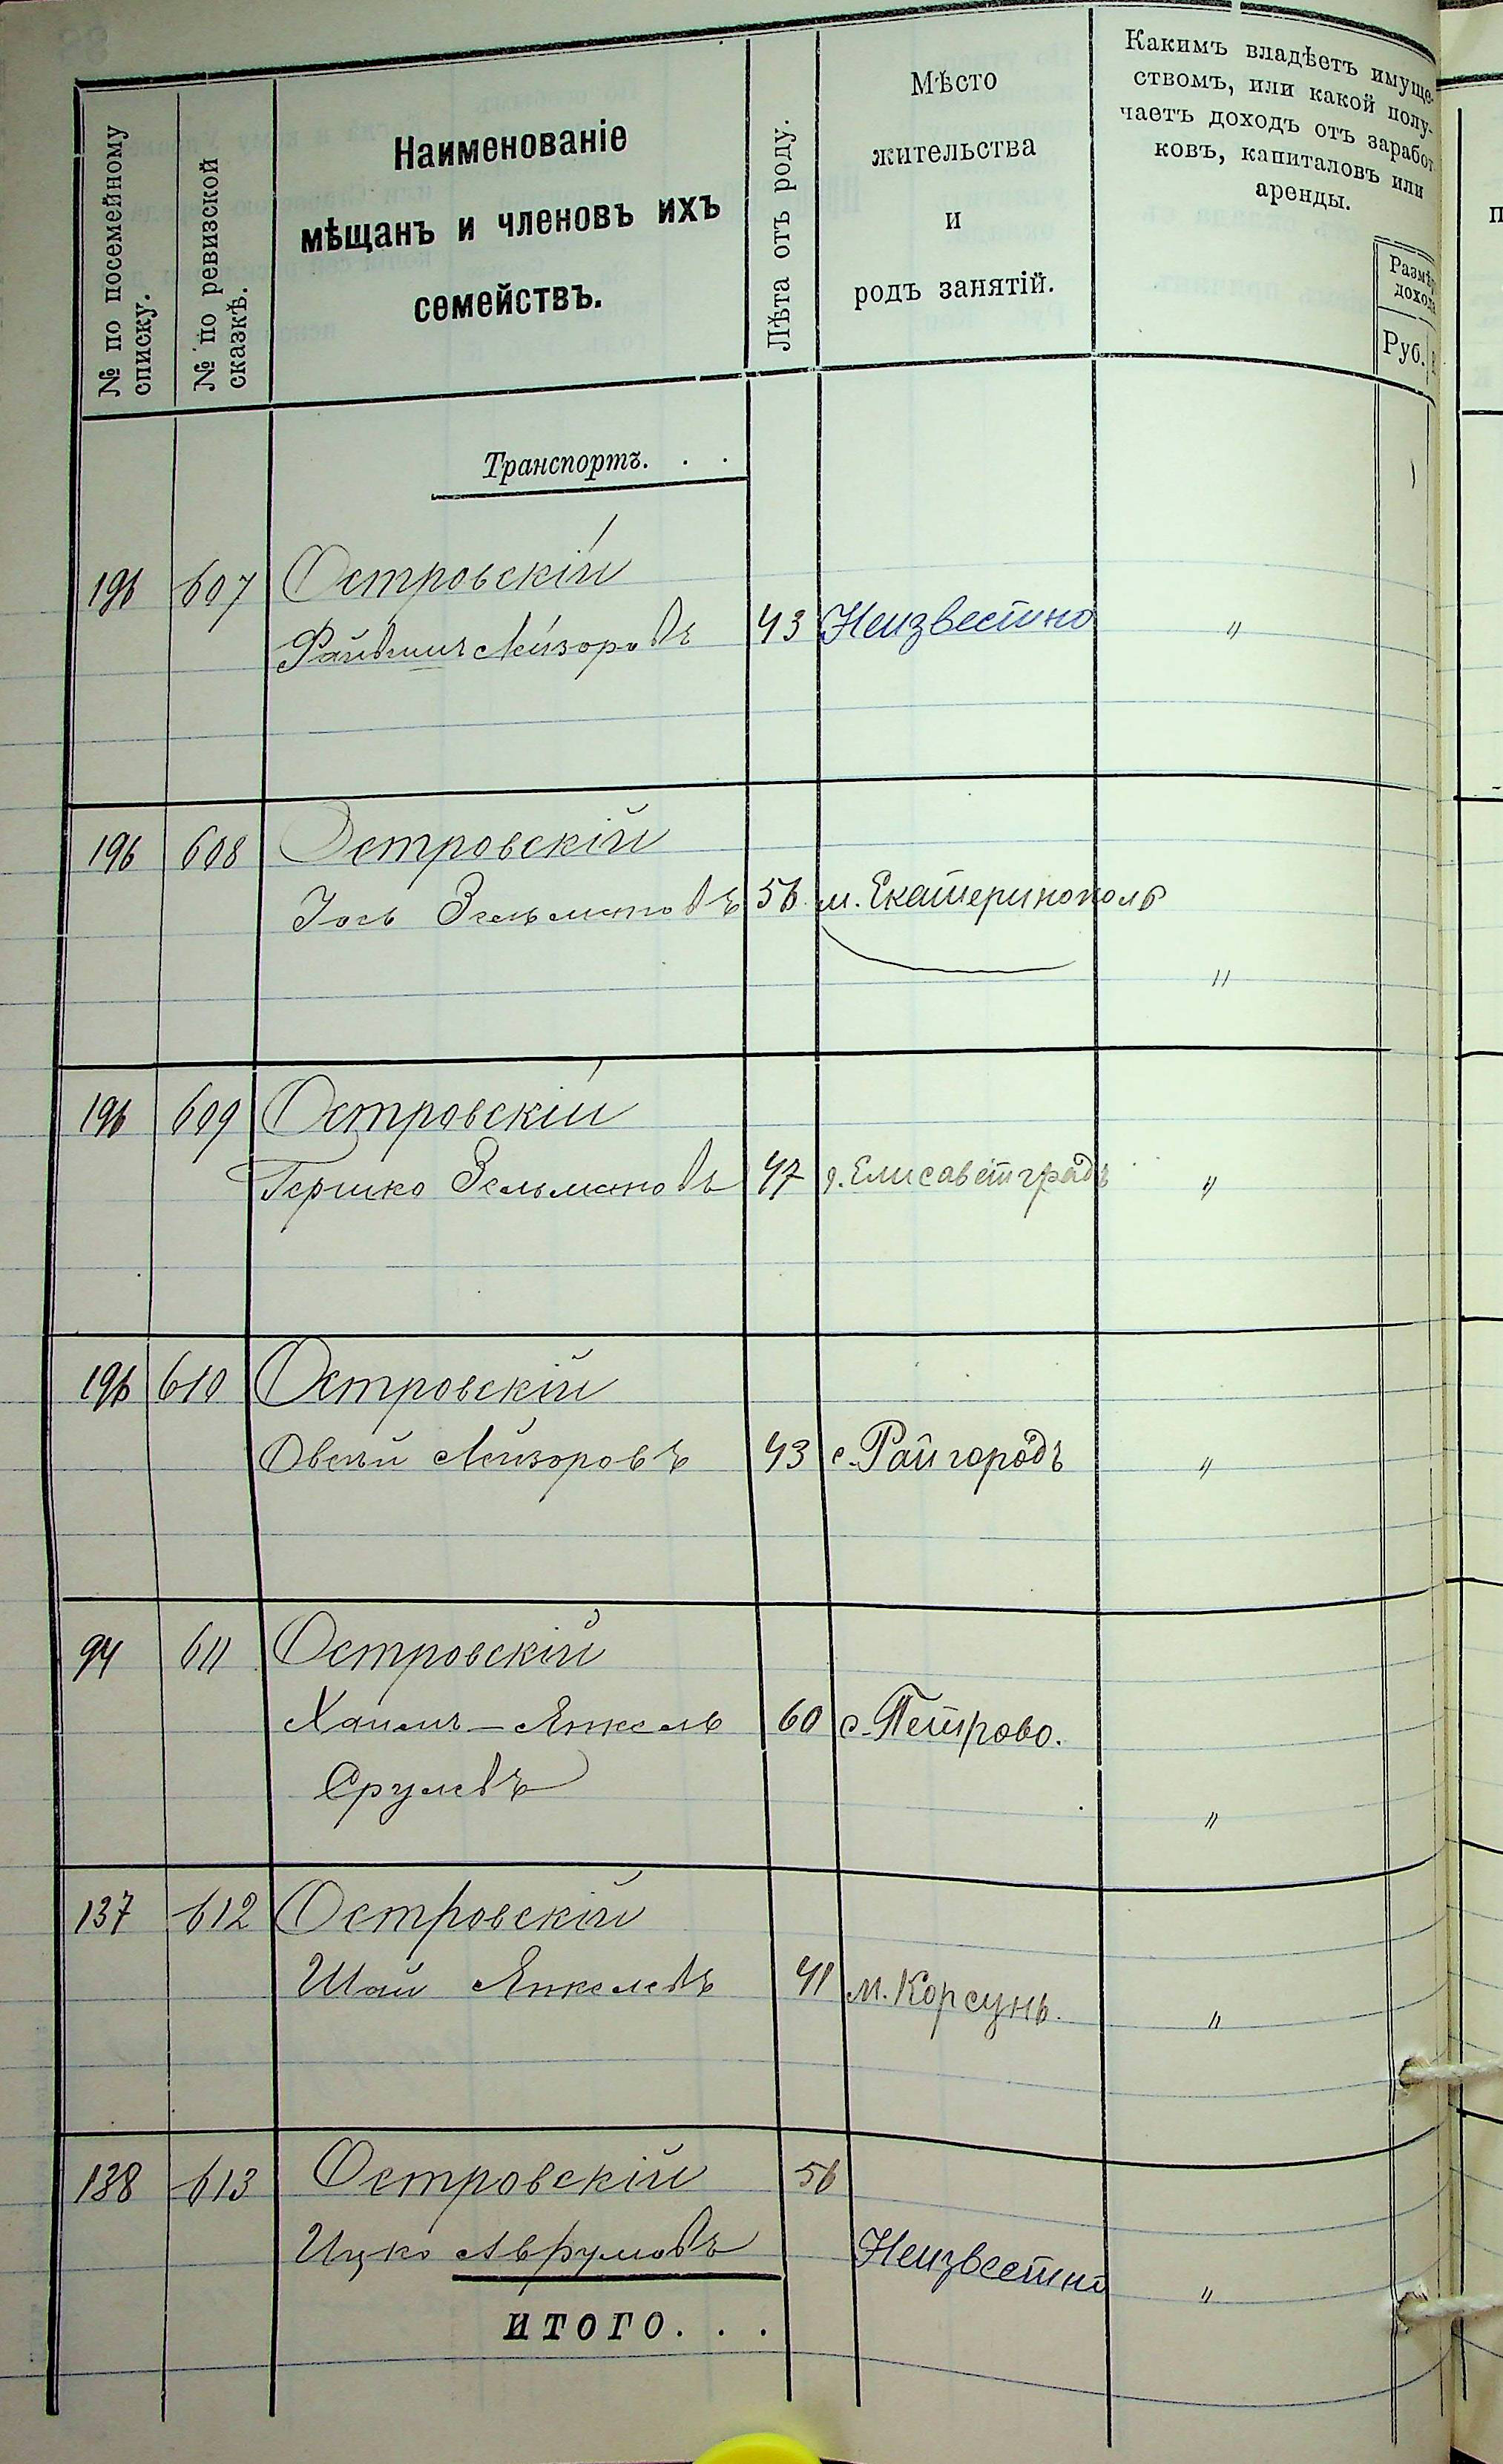 № по посемейному
списку.
№ по ревизской
сказкѣ.
Наименованіе
мѣщанъ и членовъ ихъ
семействъ.
Лѣта отъ роду.
Мѣсто
жительства
и
родъ занятій.
Какимъ владѣетъ имуще-
ствомъ, или какой полу-
чаетъ доходъ отъ заработ
ковъ, капиталовъ или
аренды.
Размѣр
дохода
Руб.
Транспортъ. . .
196 607 Островскій
Лейзоровъ 43 Неизвестно "
196 608 Островскій
Іось Зельмановъ 56 м. Екатеринополь
"
196 609 Островскій
Гершко Зельмановъ 47 г. Елисаветградъ "
196 610 Островскій
Овсѣй Лейзоровъ 43 с. Райгородъ "
94 611 Островскій
Хаимъ-Янкель 60 с. Петрово.
Срулевъ
"
137 612 Островскій
Шай Янкелевъ 41 м. Корсунь. "
138 613 Островскій 56
Ицко Аврумовъ Неизвестно "
итого. . .